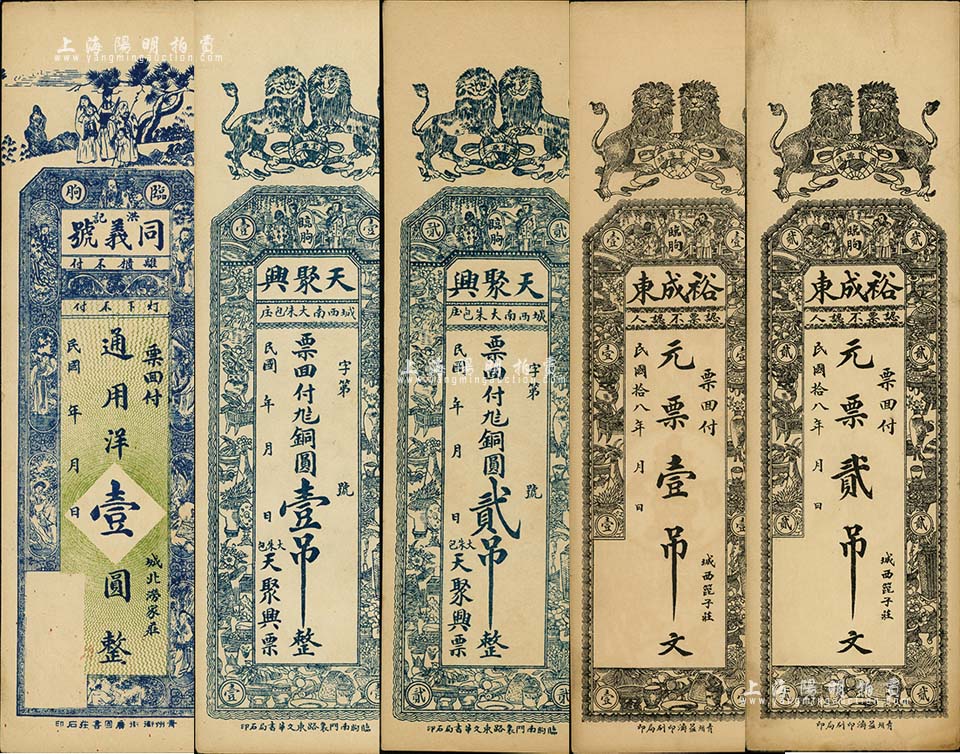 上海陽明拍賣
www.yangmingauction.com
臨朐
洪記
同義號
類憒不付
灯下不付
票回付
通用洋壹圓整
民國 年 月 日
城北澇家莊
壹 壹
臨朐
天聚興
城西南大朱包庄
字第 號
票回付九銅圓壹吊整
民國 年 月 日
大朱包
天聚興票
壹
臨朐南門裏路東文華書局石印
貳 貳
臨朐
天聚興
城西南大朱包庄
字第 號
票回付九銅圓貳吊整
民國 年 月 日
大朱包
天聚興票
貳
臨朐南門裏路東文華書局石印
壹 壹
臨朐
裕成東
認票不認人
票回付
元票壹吊文
民國拾八年 月 日
城西篦子莊
壹 壹
青州益濟印刷局印
貳 貳
臨朐
裕成東
認票不認人
票回付
元票貳吊文
民國拾八年 月 日
城西篦子莊
貳 貳
青州益濟印刷局印
上海陽明拍賣
www.yangmingauction.com
上海陽明拍賣
www.yangmingauction.com